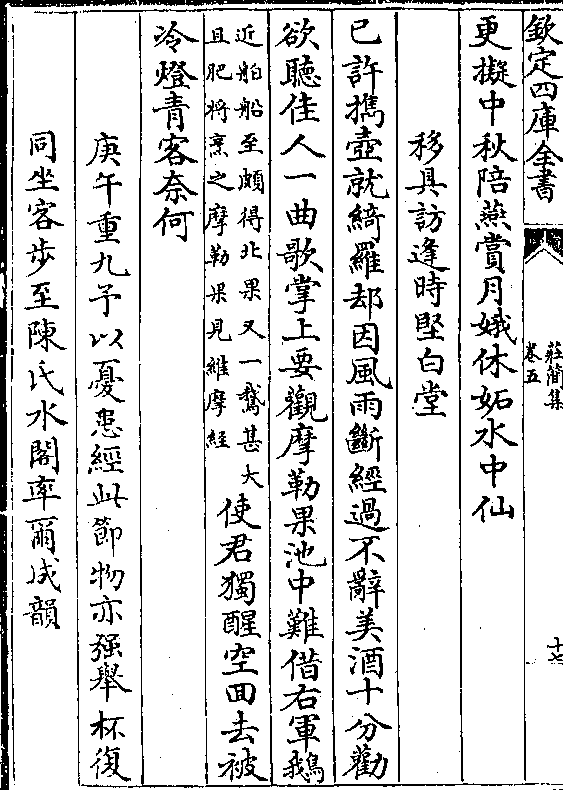 欽定四庫全書
莊簡集
卷五
十七
更擬中秋陪燕賞月娥休妬水中仙
移具訪逢時堅白堂
已許攜壺就綺羅却因風雨斷經過不辭美酒十分勸
欲聽佳人一曲歌掌上要觀摩勒果池中難借右軍鵝
近舶船至頗得北果又一鵝甚大
且肥將烹之摩勒果見維摩經
使君獨醒空回去被
冷燈青客奈何
庚午重九予以憂患經此節物亦强舉杯復
同坐客步至陳氏水閣率爾成韻